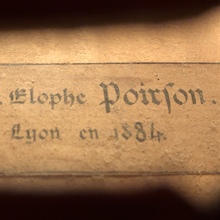 . Elophe Poirson.
Lyon en 1884.